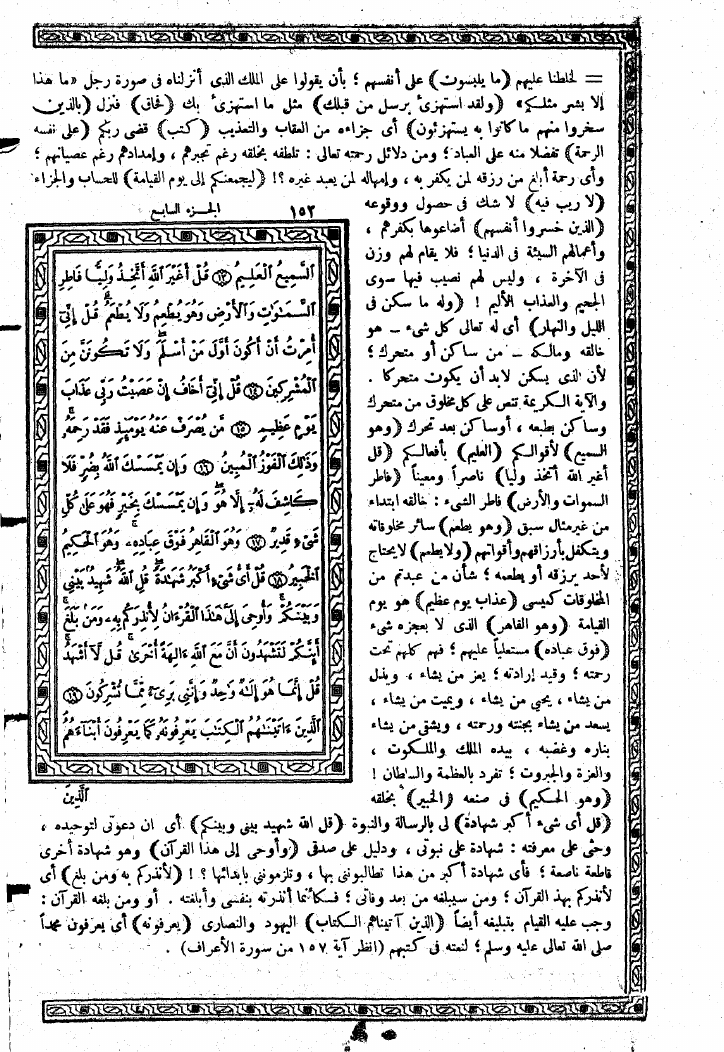 = لخلطنا عليهم (ما يلبسون) على أنفسهم ؛ بأن يقولوا على الملك الذى أنزلناه فى صورة رجل «ما هذا
إلا بشر مثلكم» (ولقد استهزئ برسل من قبلك) مثل ما استهزئ بك (فحاق) فنزل (بالذين
سخروا منهم ما كانوا به يستهزئون) أى جزاءه من العقاب والتعذيب (كتب) قضى ربكم (على نفسه
الرحمة) تفضلا منه على العباد ؛ ومن دلائل رحمته تعالى : تلطفه بخلقه رغم تجبرهم ، وإمدادهم رغم عصيانهم ؛
وأى رحمة أبلغ من رزقه لمن يكفر به ، وإمهاله لمن يعبد غيره ؟! (ليجمعنكم إلى يوم القيامة) للحساب والجزاء
(لا ريب فيه) لا شك فى حصول ووقوعه
(الذين خسروا أنفسهم) أضاعوها بكفرهم ،
وأعمالهم السيئة فى الدنيا ؛ فلا يقام لهم وزن
فى الآخرة ، وليس لهم نصيب فيها سوى
الجحيم والعذاب الأليم ! (وله ما سكن فى
الليل والنهار) أى له تعالى كل شىء – هو
خالقه ومالكه – من ساكن أو متحرك ؛
لأن الذى يسكن لابد أن يكون متحركا .
والآية الكريمة تنص على كل مخلوق من متحرك
وساكن بطبعه ، أو ساكن بعد تحرك (وهو
السميع) لأقوالكم (العليم) بأفعالكم (قل
أغير الله أتخذ وليا) ناصراً ومعيناً (فاطر
السموات والأرض) فاطر الشىء : خالقه ابتداء
من غير مثال سبق (وهو يطعم) سائر مخلوقاته
ويتكفل بأرزاقهم وأقواتهم (ولا يطعم) لا يحتاج
لأحد يرزقه أو يطعمه ؛ شأن من عبدتم من
المخلوقات كعيسى (عذاب يوم عظيم) هو يوم
القيامة (وهو القاهر) الذى لا يعجزه شىء
(فوق عباده) مستعلياً عليهم ؛ فهم كلهم تحت
رحمته ؛ وقيد إرادته ؛ يعز من يشاء ، ويذل
من يشاء ، يحيى من يشاء ، ويميت من يشاء ،
يسعد من يشاء بجنته ورحمته ، ويشقى من يشاء
بناره وغضبه ، بيده الملك والملكوت ،
والعزة والجبروت ؛ تفرد بالعظمة والسلطان !
(وهو الحكيم) فى صنعه (الخبير) بخلقه
١٥٣ الجزء السابع
السَّمِيعُ الْعَلِيمُ ۝١٣ قُلْ أَغَيْرَ اللَّهِ أَتَّخِذُ وَلِيًّا فَاطِرِ
السَّمَٰوَٰتِ وَالْأَرْضِ وَهُوَ يُطْعِمُ وَلَا يُطْعَمُ ۗ قُلْ إِنِّي
أُمِرْتُ أَنْ أَكُونَ أَوَّلَ مَنْ أَسْلَمَ ۖ وَلَا تَكُونَنَّ مِنَ
الْمُشْرِكِينَ ۝١٤ قُلْ إِنِّي أَخَافُ إِنْ عَصَيْتُ رَبِّي عَذَابَ
يَوْمٍ عَظِيمٍ ۝١٥ مَّن يُصْرَفْ عَنْهُ يَوْمَئِذٍ فَقَدْ رَحِمَهُۥ ۚ
وَذَٰلِكَ الْفَوْزُ الْمُبِينُ ۝١٦ وَإِن يَمْسَسْكَ اللَّهُ بِضُرٍّ فَلَا
كَاشِفَ لَهُۥٓ إِلَّا هُوَ ۖ وَإِن يَمْسَسْكَ بِخَيْرٍ فَهُوَ عَلَىٰ كُلِّ
شَيْءٍ قَدِيرٌ ۝١٧ وَهُوَ الْقَاهِرُ فَوْقَ عِبَادِهِۦ ۚ وَهُوَ الْحَكِيمُ
الْخَبِيرُ ۝١٨ قُلْ أَيُّ شَيْءٍ أَكْبَرُ شَهَٰدَةً ۖ قُلِ اللَّهُ ۖ شَهِيدٌۢ بَيْنِي
وَبَيْنَكُمْ ۚ وَأُوحِيَ إِلَيَّ هَٰذَا الْقُرْءَانُ لِأُنذِرَكُم بِهِۦ وَمَنۢ بَلَغَ ۚ
أَئِنَّكُمْ لَتَشْهَدُونَ أَنَّ مَعَ اللَّهِ ءَالِهَةً أُخْرَىٰ ۚ قُل لَّآ أَشْهَدُ ۚ
قُلْ إِنَّمَا هُوَ إِلَٰهٌ وَٰحِدٌ وَإِنَّنِي بَرِيٓءٌ مِّمَّا تُشْرِكُونَ ۝١٩
الَّذِينَ ءَاتَيْنَٰهُمُ الْكِتَٰبَ يَعْرِفُونَهُۥ كَمَا يَعْرِفُونَ أَبْنَآءَهُمُ
الَّذِينَ
(قل أى شىء أكبر شهادة) لى بالرسالة والنبوة (قل الله شهيد بينى وبينكم) أى ان دعوتى لتوحيده ،
وحثى على معرفته : شهادة على نبوتى ، ودليل على صدقى (وأوحى إلى هذا القرآن) وهو شهادة أخرى
قاطعة ناصعة ؛ فأى شهادة أكبر من هذا تطالبوننى بها ، وتلزموننى بابدائها ؟ ! (لأنذركم به ومن بلغ) أى
لأنذركم بهذا القرآن ؛ ومن سيبلغه من بعد وفاتى ؛ فكأنما أنذرته بنفسى وأبلغته . أو ومن بلغه القرآن :
وجب عليه القيام بتبليغه أيضاً (الذين آتيناهم الكتاب) اليهود والنصارى (يعرفونه) أى يعرفون محمداً
صلى الله تعالى عليه وسلم ؛ لنعته فى كتبهم (انظر آية ١٥٧ من سورة الأعراف) .